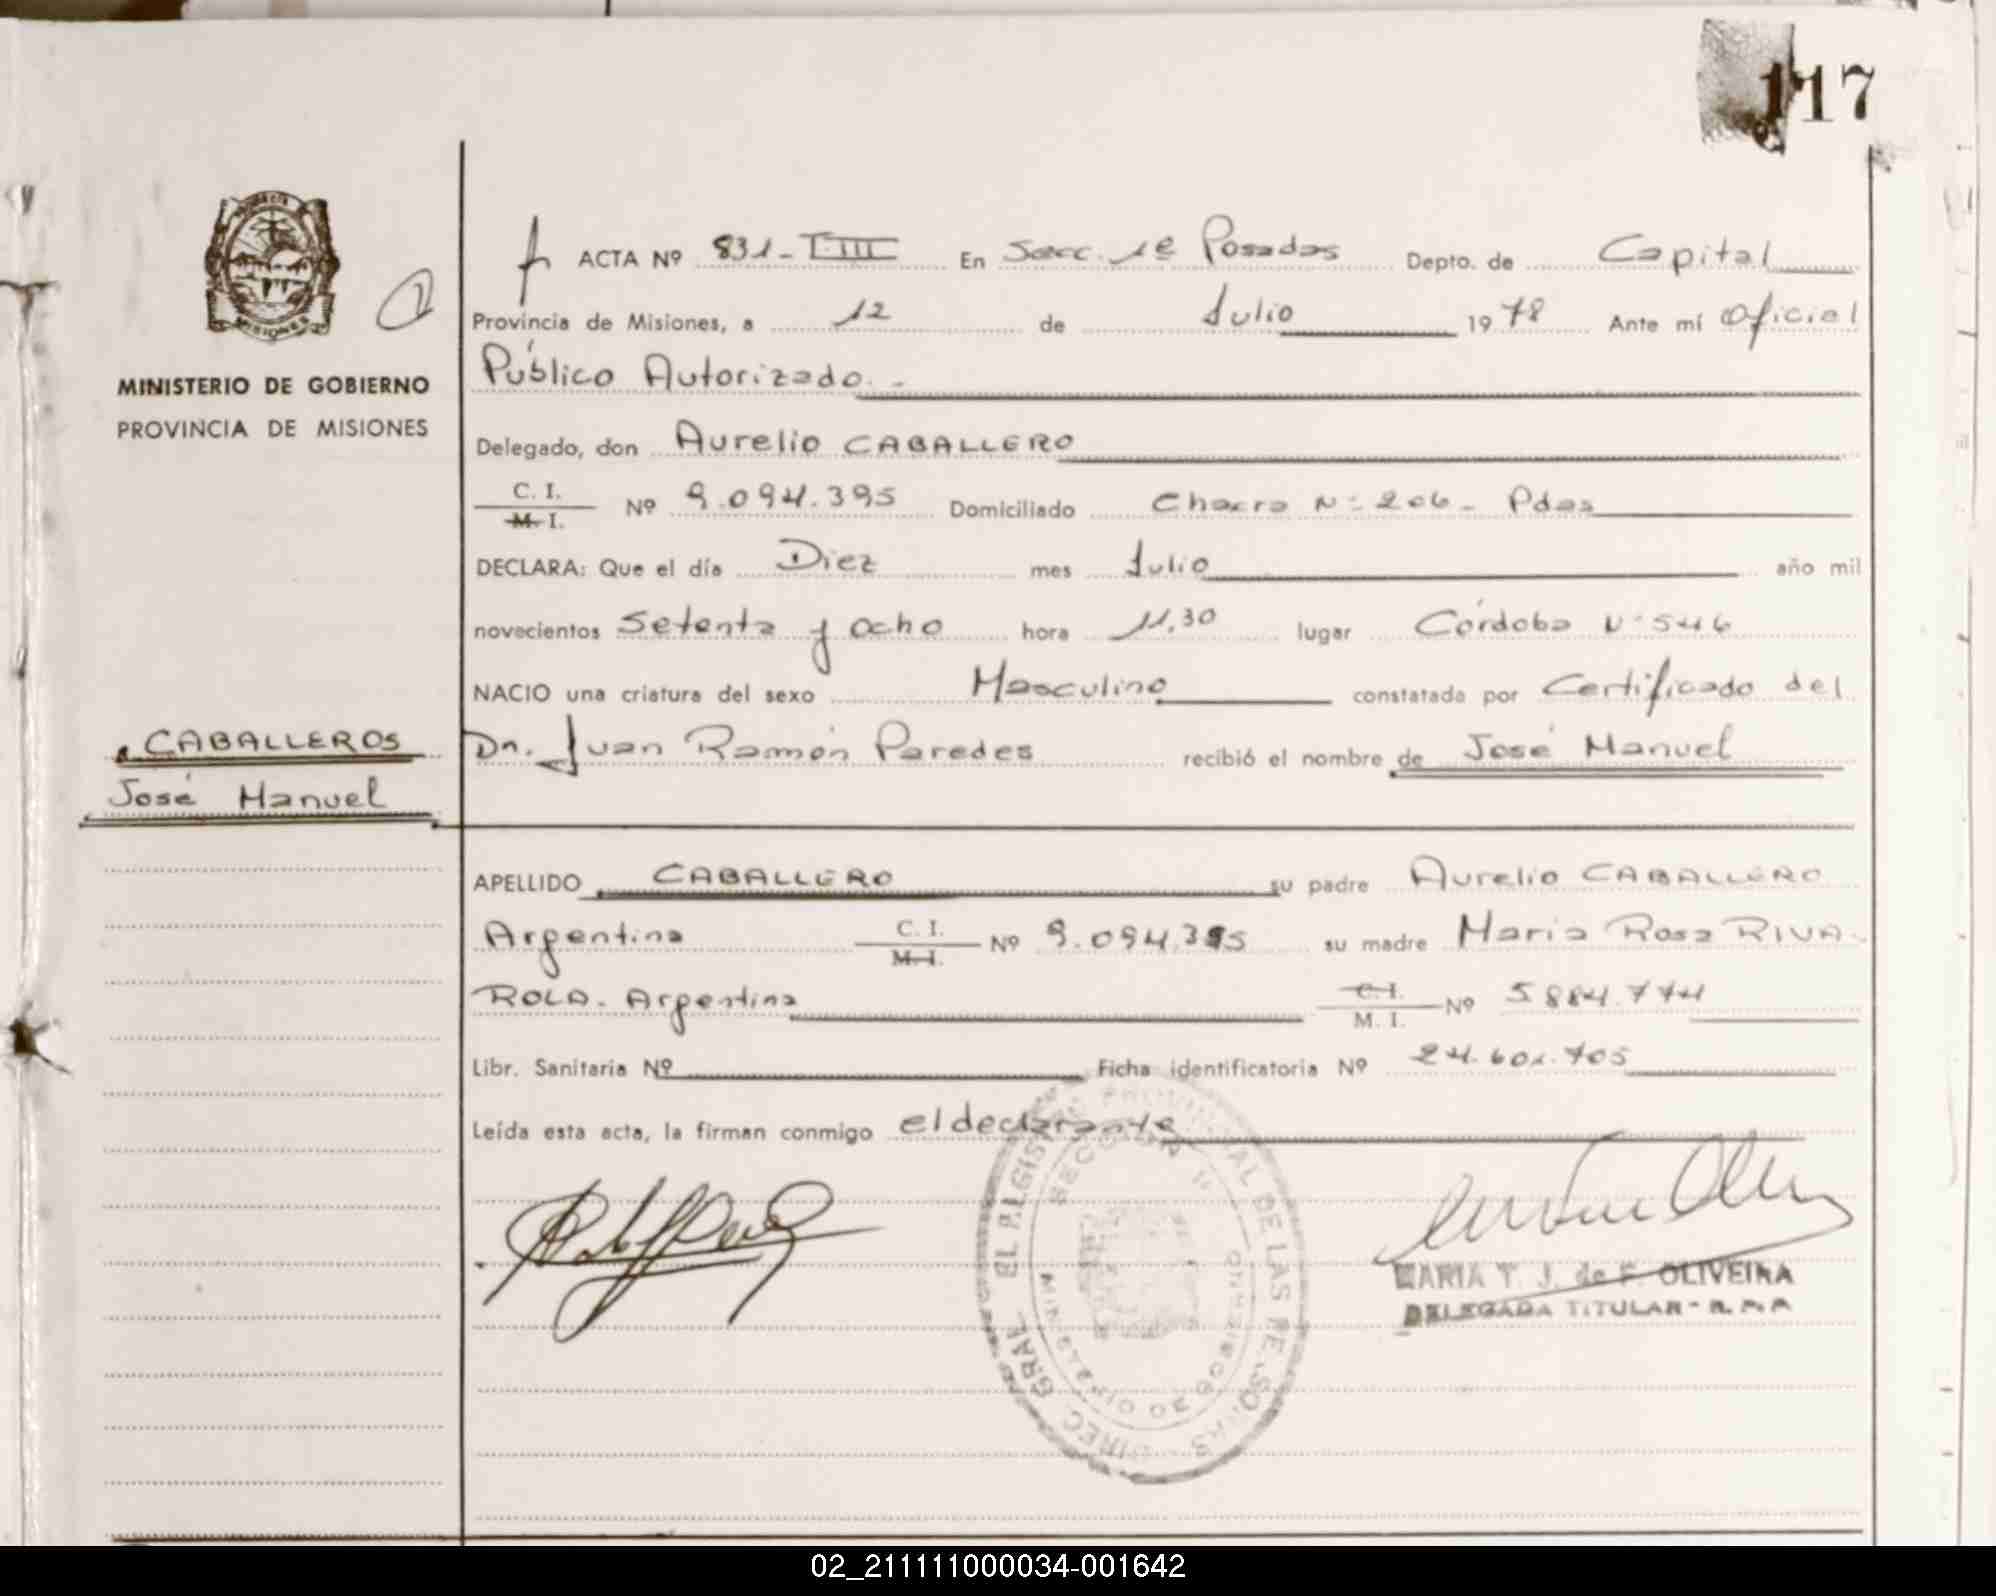 117
ACTA Nº 831-T.III En Secc. 1º Posadas Depto. de Capital
Provincia de Misiones, a 12 de Julio 1978 Ante mí Oficial
MINISTERIO DE GOBIERNO
PROVINCIA DE MISIONES
Público Autorizado.-
Delegado, don Aurelio CABALLERO
C. I.
M. I. Nº 9.094.395 Domiciliado Chacra Nº 206 - Pdas
DECLARA: Que el día Diez mes Julio año mil
novecientos Setenta y ocho hora 11,30 lugar Córdoba Nº 546
NACIO una criatura del sexo Masculino constatada por Certificado del
Dn. Juan Ramón Paredes recibió el nombre de José Manuel
CABALLEROS
José Manuel
APELLIDO CABALLERO su padre Aurelio CABALLERO
Argentina C. I.
M. I. Nº 9.094.395 su madre Maria Rosa RIVA-
ROLA. Argentina C. I.
M. I. Nº 5.884.774
Libr. Sanitaria Nº Ficha identificatoria Nº 24.601.705
Leída esta acta, la firman conmigo el declarante
DELEGADA TITULAR - R.P.P
MARIA T. J. de F. OLIVEIRA
SECCION 1ª
MINISTERIO DE GOBIERNO
02_211111000034-001642